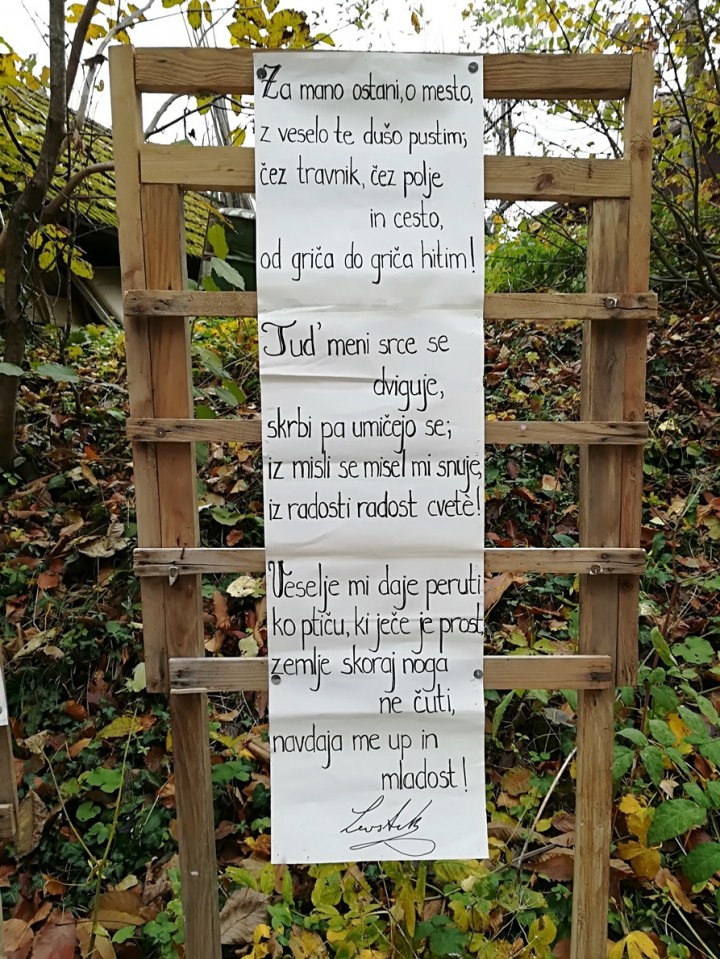 Za mano ostani, o mesto,
z veselo te dušo pustim;
čez travnik, čez polje
in cesto,
od griča do griča hitim!
Tud' meni srce se
dviguje,
skrbi pa umičejo se;
iz misli se misel mi snuje,
iz radosti radost cvetè!
Veselje mi daje peruti
ko ptiču, ki ječe je prost,
zemlje skoraj noga
ne čuti,
navdaja me up in
mladost!
Levstik